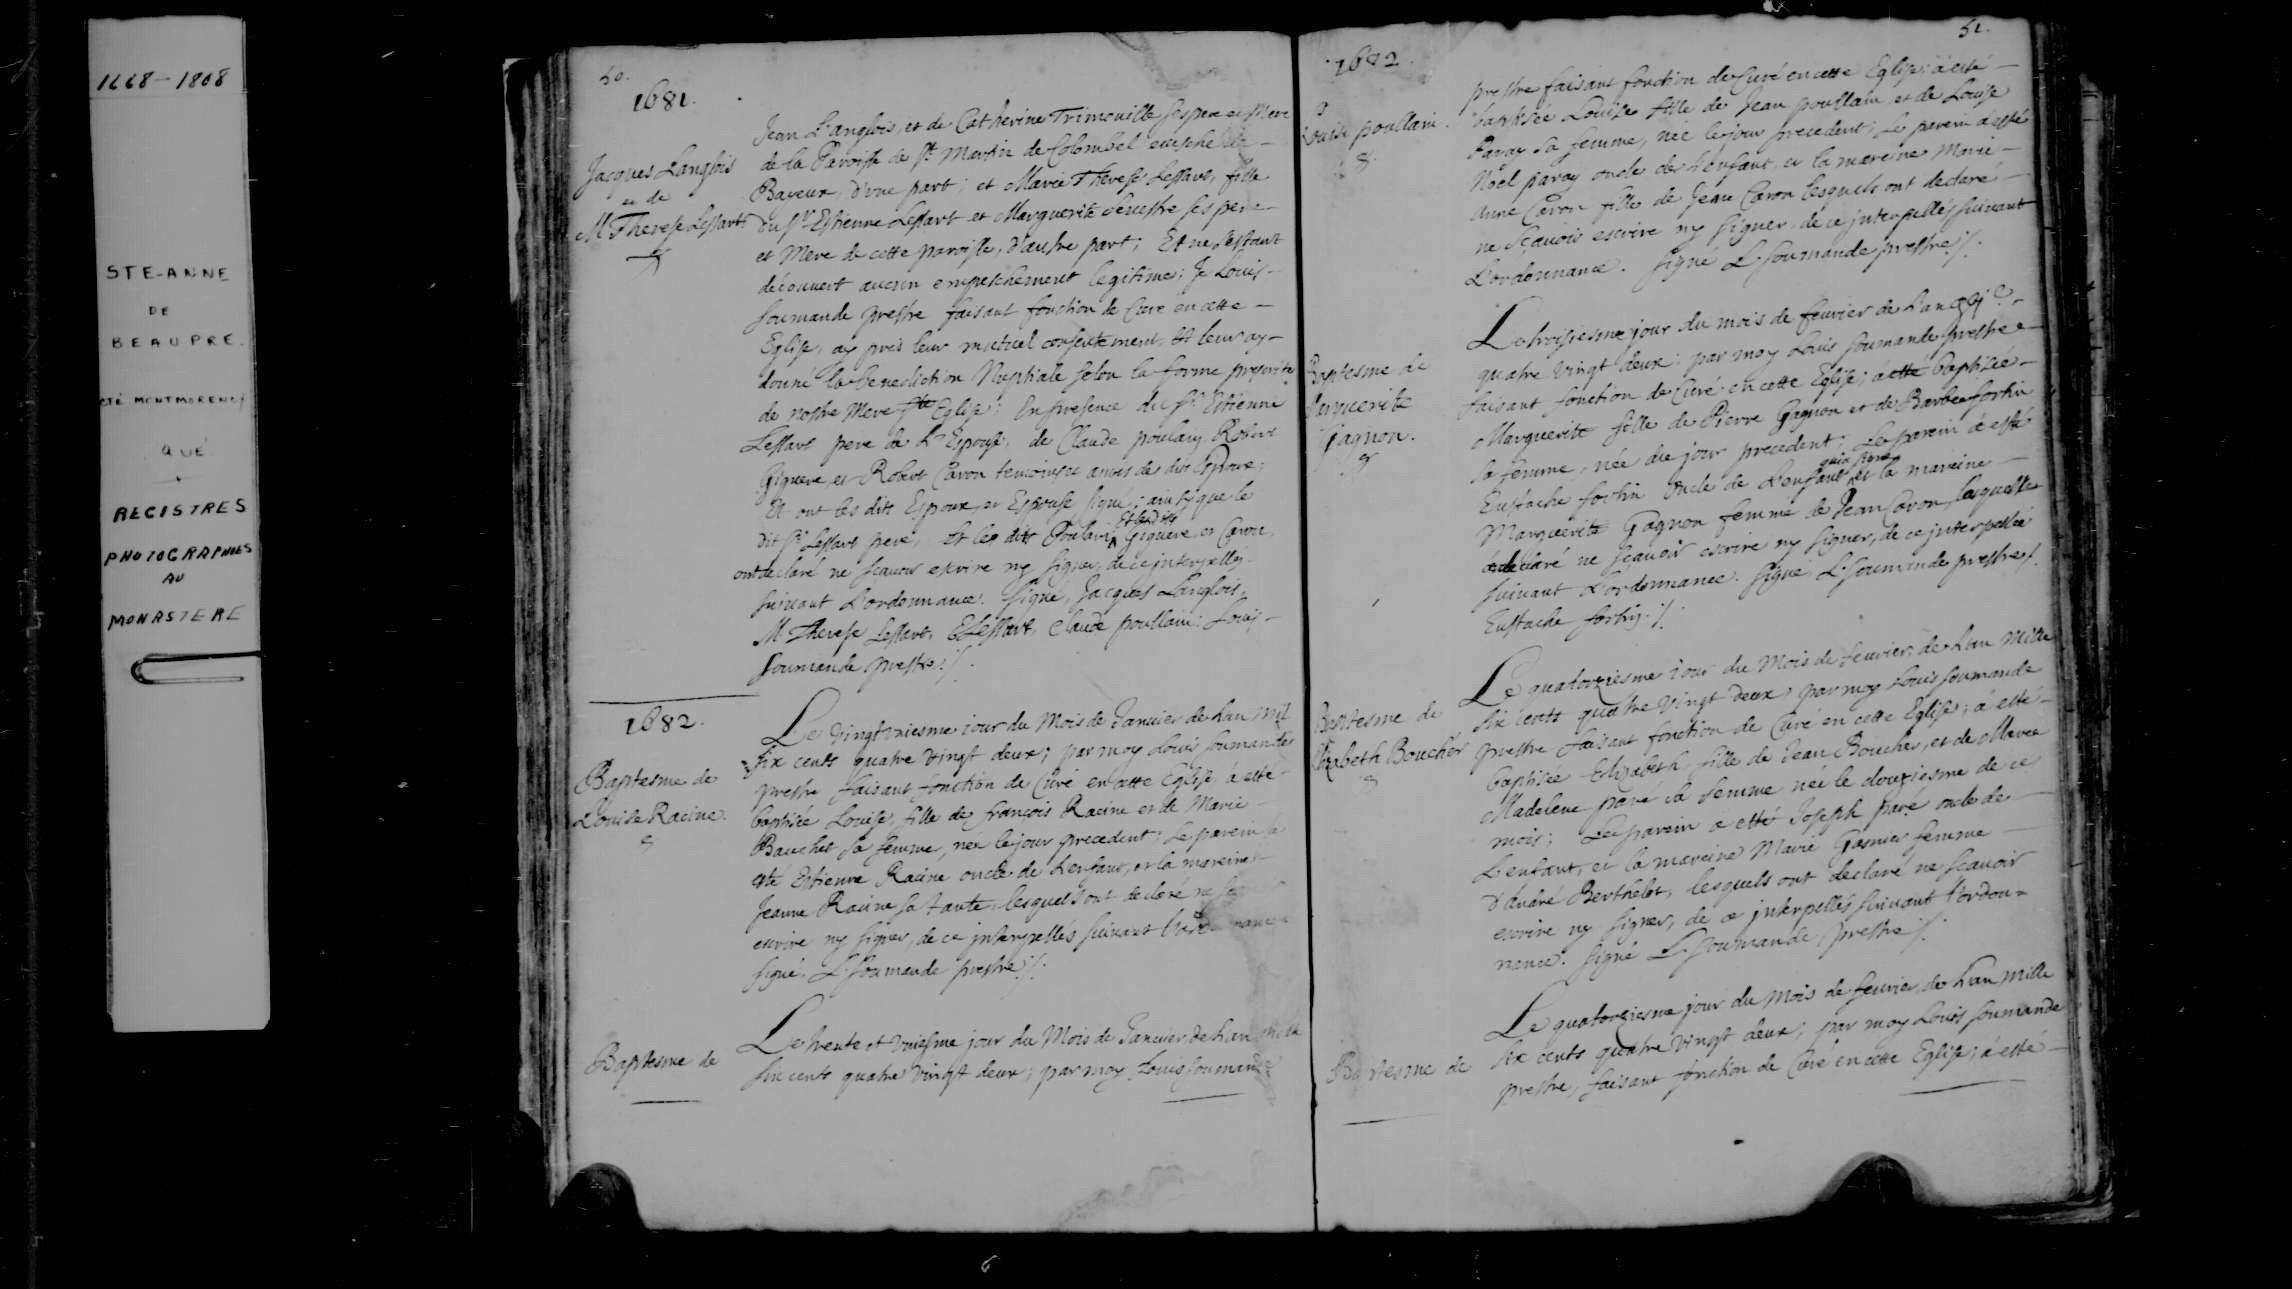 1668-1808
STE-ANNE
DE
BEAUPRE.
CTÉ MONTMORENCY
QUÉ
REGISTRES
PHOTOGRAPHIÉS
AU
MONASTERE
50.
1681.
Jacques Langlois
et de
M Therese Lessart
Jean L'anglois, et de Catherine Trimouille ses pere et Mere
de la Paroisse de St Martin de Colombel euesché de
Bayeux d'vne part; et Marie Therese Lessart, fille
du Sr Estienne Lessart et Marguerite Senestre ses pere
et Mere de cette paroisse, d'autre part; Et ne s'estant
découuert aucun empeschement legitime; Je Louis
Soumande prestre faisant fonction de Curé en cette
Eglise, ay pris leur mutuel consentement, et leur ay
donné la benediction Nuptiale selon la forme prescrite
de nostre Mere Ste Eglise; En presence du Sr Estienne
Lessart pere de L'Espouse, de Claude poulain, Robert
Giguere, et Robert Caron temoins et amis des dits Espoux;
Et ont les dits Espoux, et Espouse signé; ainsy que le
dit Sr Lessart pere, et le dit Poulain, Et lesdits Giguere, et Caron,
ont declaré ne scauoir escrire ny signer, de ce interpellés
suiuant L'ordonnance. Signé, Jacques Langlois,
M. Therese Lessart, E Lessart, Claude poullain: Louis
Soumande prestre ./.
1682.
Baptesme de
Louise Racine.
8
Le vingtvniesme iour du Mois de Januier de Lan mil
six cents quatre vingt deux; par moy Louis Soumande
prestre faisant fonction de Curé en cette Eglise à esté
baptisée Louise, fille de françois Racine et de Marie
Bauchet sa femme, née le jour precedent; Le parein a
esté Estienne Racine oncle de L'enfant, et la mareine
Jeanne Racine sa tante, lesquels ont declaré ne
escrire ny signer, de ce interpellés suiuant L'ordonnance
signé. L. Soumande prestre ./.
Baptesme de
Le trente et vniesme jour du Mois de Januier de Lan mille
six cents quatre vingt deux; par moy Louis Soumande
51.
1682.
Louise poullain.
8.
prestre faisant fonction de Curé en cette Eglise; à esté
baptisée Louise fille de Jean poullain et de Louise
Paray sa femme, née le jour precedent; Le parein a esté
Noel paray oncle de L'enfant, et la mareine Marie
Anne Caron fille de Jean Caron lesquels ont declaré
ne sçauoir escrire ny signer, de ce interpellés suiuant
L'ordonnance. Signé L. Soumande prestre ./.
Baptesme de
Marguerite
Gagnon.
8
Le troisiesme jour du mois de feurier de Lan
quatre vingt deux; par moy Louis Soumande prestre
faisant fonction de Curé en cette Eglise; a esté baptisée
Marguerite fille de Pierre Gagnon et de Barbe fortin
sa femme, née du jour precedent; Le parein à esté
Eustache fortin oncle de L'enfant qui a signé, et la mareine
Marguerite Gagnon femme de Jean Caron, laquelle
a declaré ne scauoir escrire ny signer, de ce interpellée
suiuant L'ordonnance. Signé, L. Soumande prestre ./.
Eustache fortin ./.
Baptesme de
Elizabeth Boucher
8
Le quatorziesme iour du Mois de feurier de Lan Mille
six cents quatre vingt deux, par moy Louis Soumande
prestre faisant fonction de Curé en cette Eglise; à esté
baptisée Elizabeth fille de Jean Boucher, et de Marie
Madelene paré sa femme née le douziesme de ce
mois; Le parein a esté Joseph paré oncle de
L'enfant, et la mareine Marie Gasnier femme
d'André Berthelot, lesquels ont declaré ne scauoir
escrire ny signer, de ce interpellés suiuant l'ordon=
nance. Signé L. Soumande prestre ./.
Baptesme de
Le quatorziesme jour du Mois de feurier de Lan mille
six cents quatre vingt deux; par moy Louis Soumande
prestre, faisant fonction de Curé en cette Eglise; à esté